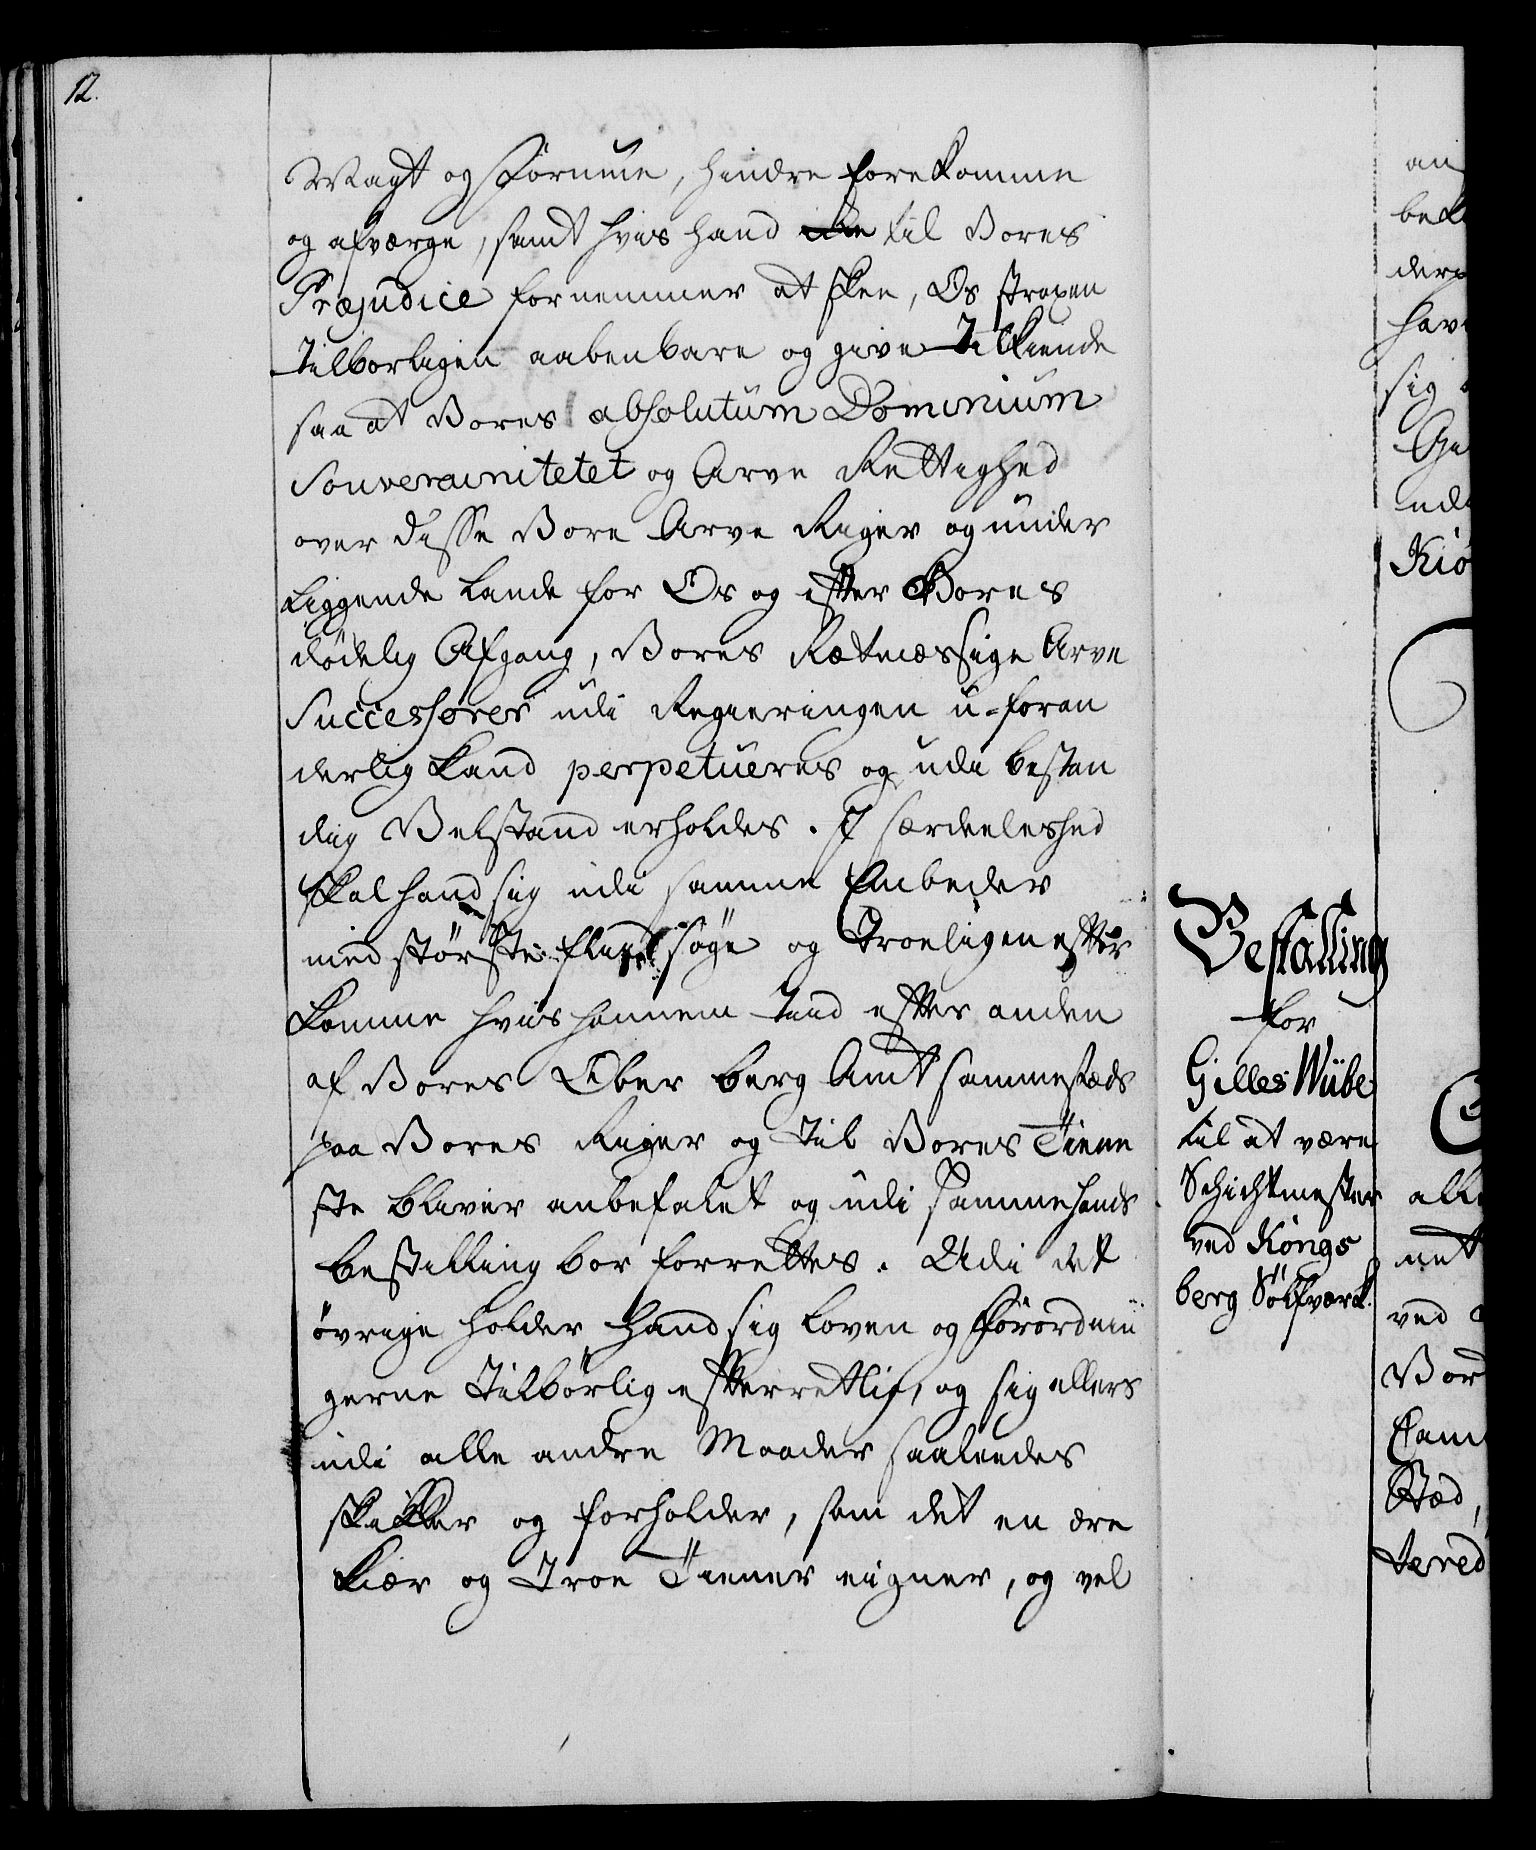 12.
Magt og Formue, hindre forekomme
og afværge, samt hvis hand til Vores
Præjudice fornemmer at skee, Os straxen
tilborligen aabenbare og give tilkiende
saa at Vores absolutum Dominium
Souverainitetet og Arve Rettighed
over disse Vore Arve Riger og under
liggende Lande for Os og efter Vores
dødelig Afgang, Vores Rætmæssige Arve
Successorer udi Regieringen u-foran
derlig kand perpetueres og udi bestan
dig Velstand erholdes. I særdeeleshed
skal hand sig udi samme Embeder
med störste fliid söge og troeligen efter
komme hvis hannem tiid efter anden
af Vores Ober berg Amt sammestæds
paa Vores Riger og til Vores Tiene
ste bliver anbefalet og udi samme hands
bestilling bor forrettes. Udi det
övrige holder hand sig loven og Forordnin
gerne tilbörlig efterrettlig, og sig ellers
udi alle andre Maader saaleedes
skikker og forholder, som det en ære
kiær og troe Tiener eigner, og vel
Bestalling
for
Gilles Wübe
til at være
Schichtmester
ved Kongs
berg Sölfværk.